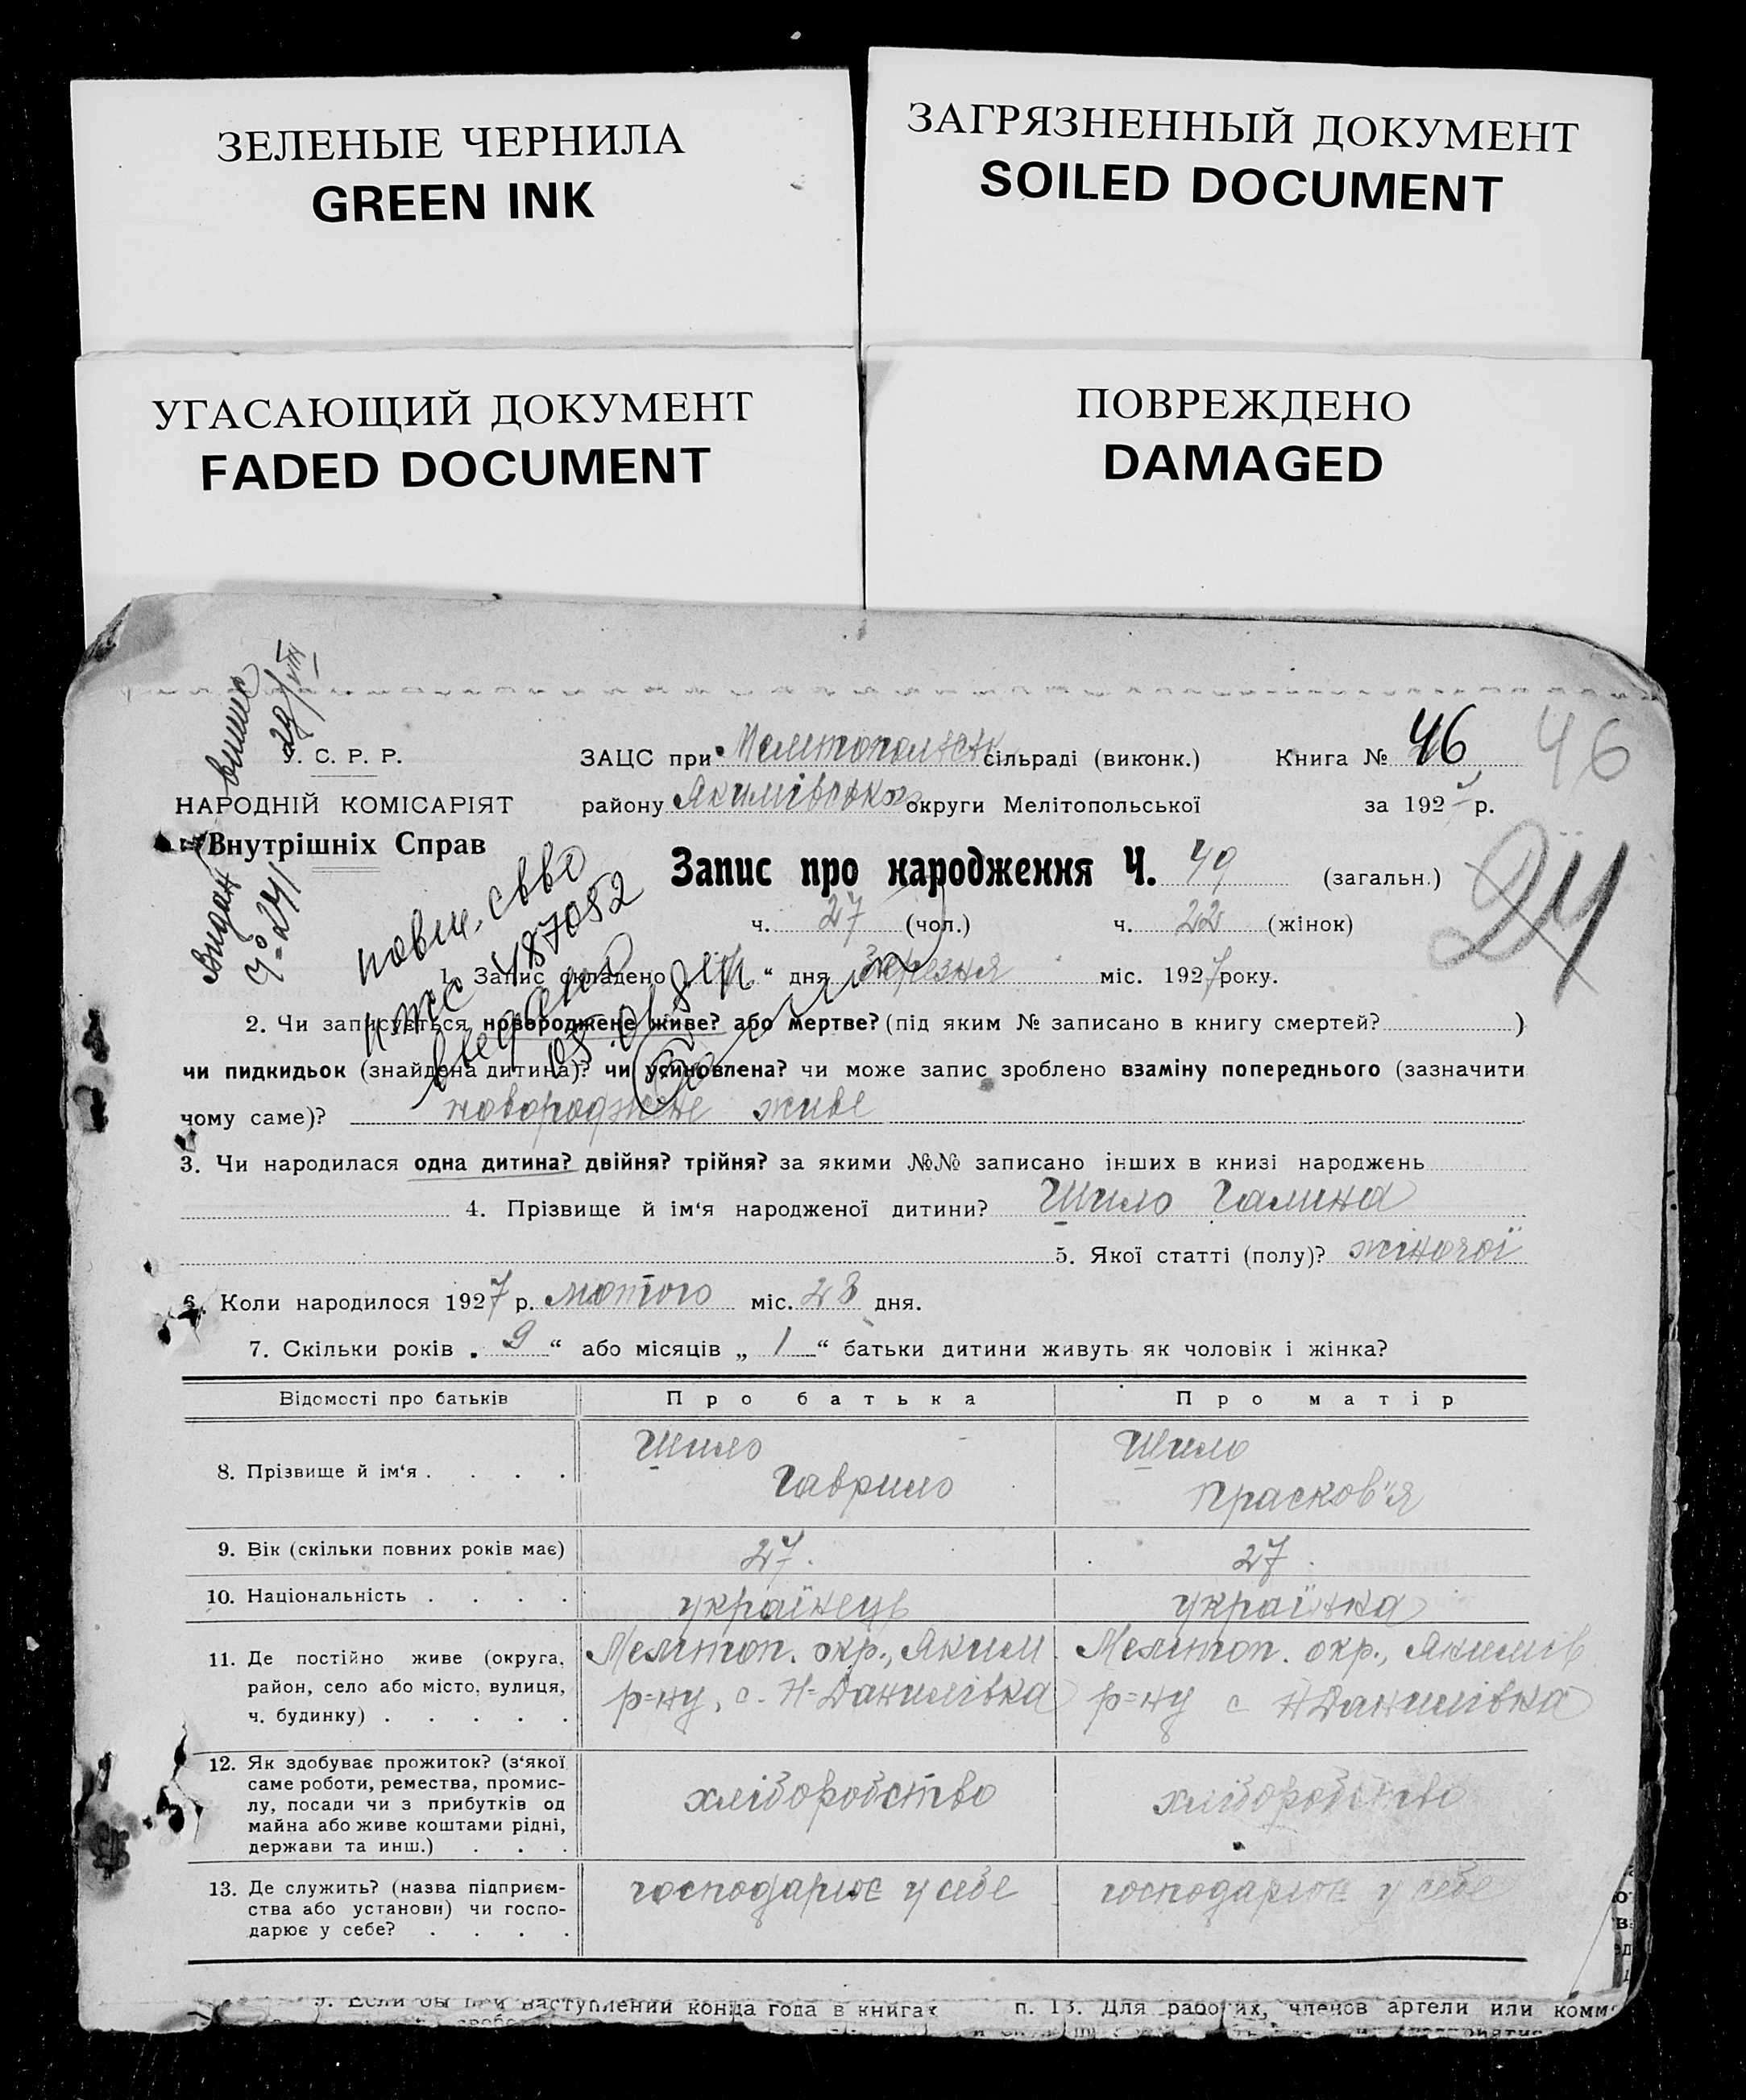 ЗЕЛЕНЫЕ ЧЕРНИЛА
GREEN INK
ЗАГРЯЗНЕННЫЙ ДОКУМЕНТ
SOILED DOCUMENT
УГАСАЮЩИЙ ДОКУМЕНТ
FADED DOCUMENT
ПОВРЕЖДЕНО
DAMAGED
У. С. Р. Р.
НАРОДНІЙ КОМІСАРІЯТ
Внутрішніх Справ
ЗАЦС при сільраді (виконк.) Книга № 46 46
району Якимівського округи Мелітопольської за 192 р.
Запис про народження Ч. 49 (загальн.) 24
ч. 27 (чол.) ч. 22 (жінок)
повт. свво
487052
1. Запис складено “ дня березня міс. 1927 року.
2. Чи записується новороджене живе? або мертве? (під яким № записано в книгу смертей? )
чи пидкидьок (знайдена дитина)? чи усиновлена? чи може запис зроблено взаміну попереднього (зазначити
чому саме)? новороджене живе
3. Чи народилася одна дитина? двійня? трійня? за якими №№ записано інших в книзі народжень
4. Прізвище й ім‘я народженої дитини? Шило Галина
5. Якої статті (полу)? жіночої
6. Коли народилося 1927 р. лютого міс. 28 дня.
7. Скільки років „ 9 “ або місяців „ 1 “ батьки дитини живуть як чоловік і жінка?
Відомості про батьків Про батька Про матір
8. Прізвище й ім‘я . . . . Шило Гаврило Шило Прасков'я
9. Вік (скільки повних років має) 27. 27.
10. Національність . . . . українець українка
11. Де постійно живе (округа, Меліт оп. окр., Яким Мелітоп. окр., Якимів
район, село або місто, вулиця, р=ну, с. Н=Данилівка р=ну с Н Данилівка
ч. будинку) . . . . .
12. Як здобуває прожиток? (з‘якої
саме роботи, ремества, промис-
лу, посади чи з прибутків од хліборобство хліборобство
майна або живе коштами рідні,
держави та инш.) . . .
13. Де служить? (назва підприєм- господарює у себе господарює у себе
ства або установи) чи госпо-
дарює у себе? . . . .
9. Если бы при наступлении конца года в книгах п. 13. Для рабочих, членов артели или комм